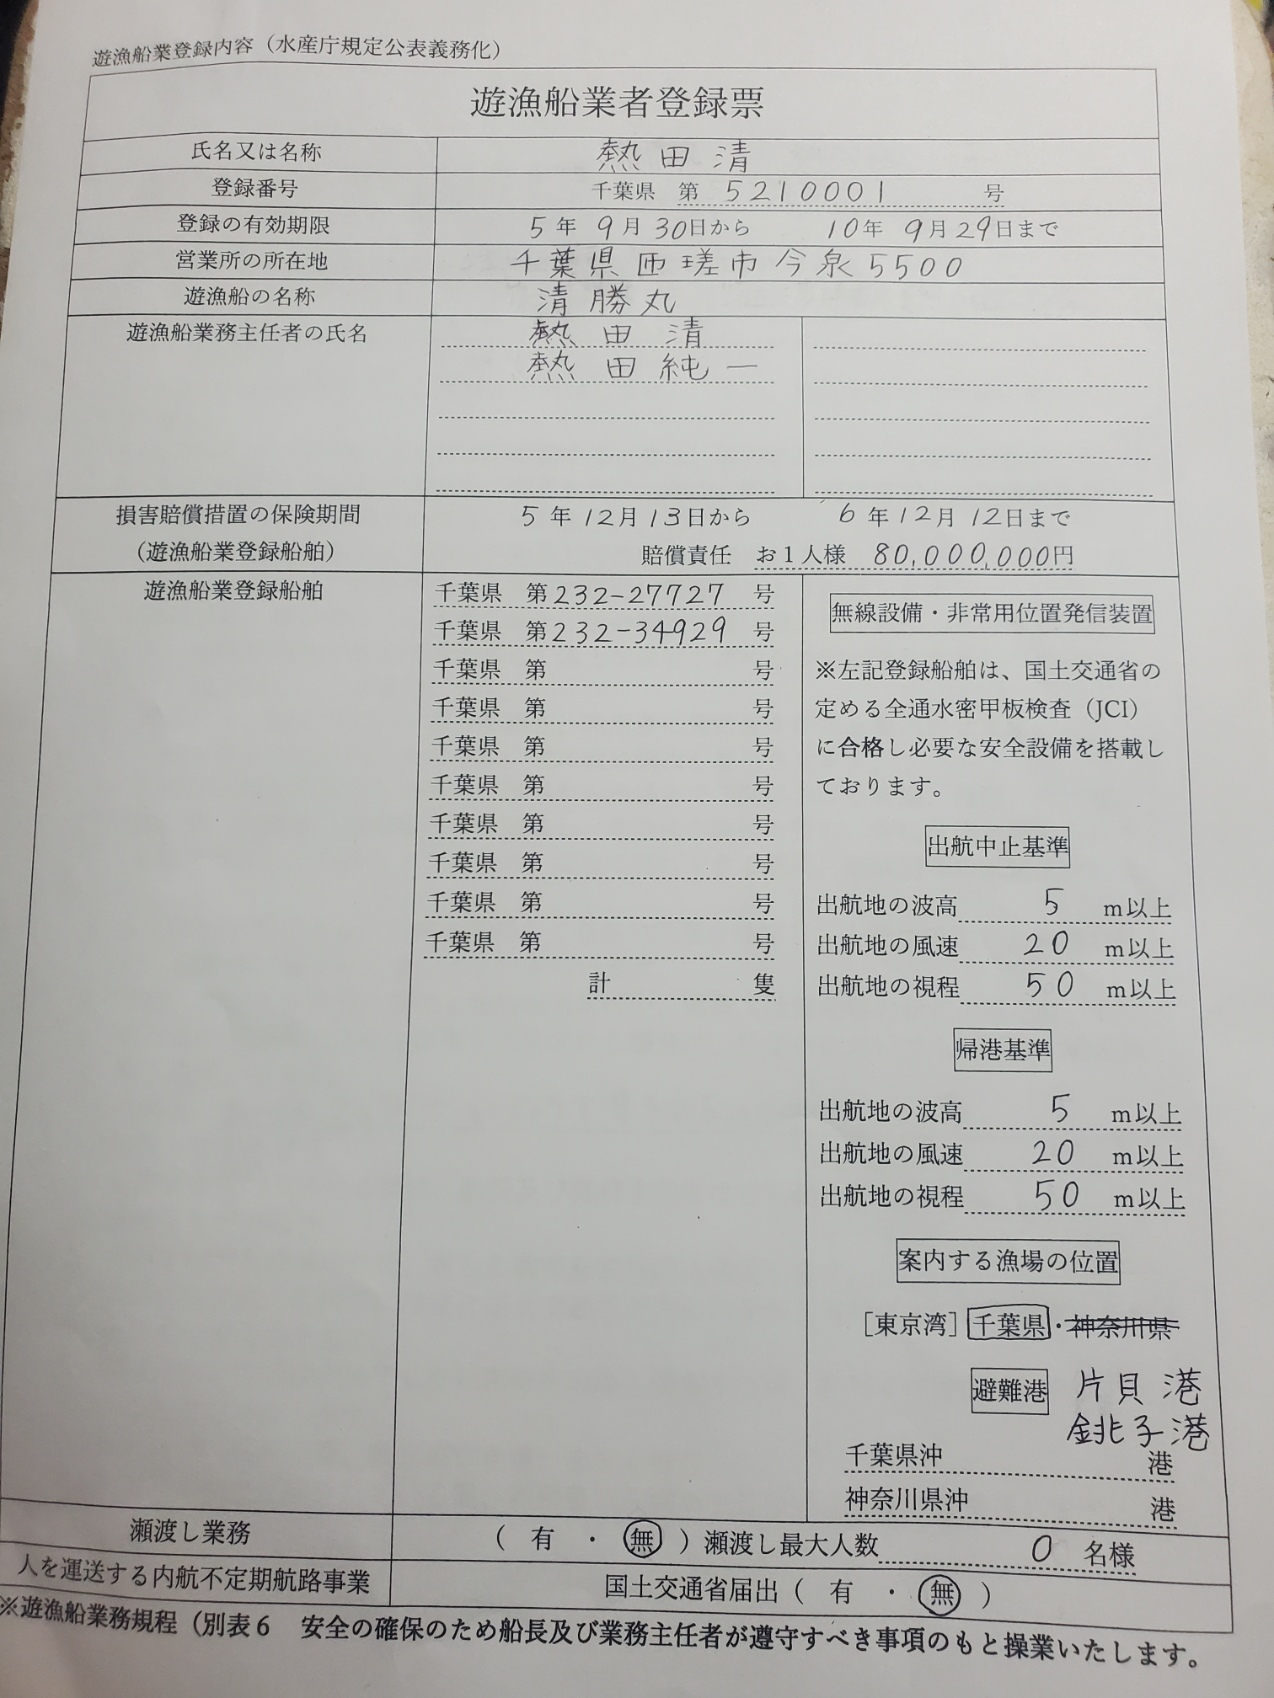 遊漁船業登録内容（水産庁規定公表義務化）
遊漁船業者登録票
氏名又は名称 熱田清
登録番号 千葉県 第 5210001 号
登録の有効期限 5年 9月30日から 10年 9月29日まで
営業所の所在地 千葉県匝瑳市今泉5500
遊漁船の名称 清勝丸
遊漁船業務主任者の氏名 熱田清
熱田純一
損害賠償措置の保険期間 5年12月13日から 6年12月12日まで
（遊漁船業登録船舶） 賠償責任 お1人様 80,000,000円
遊漁船業登録船舶
千葉県 第232-27727 号
千葉県 第232-34929 号
千葉県 第 号
千葉県 第 号
千葉県 第 号
千葉県 第 号
千葉県 第 号
千葉県 第 号
千葉県 第 号
千葉県 第 号
計 隻
無線設備・非常用位置発信装置
※左記登録船舶は、国土交通省の
定める全通水密甲板検査（JCI）
に合格し必要な安全設備を搭載し
ております。
出航中止基準
出航地の波高 5 m以上
出航地の風速 20 m以上
出航地の視程 50 m以上
帰港基準
出航地の波高 5 m以上
出航地の風速 20 m以上
出航地の視程 50 m以上
案内する漁場の位置
［東京湾］千葉県・神奈川県
避難港 片貝港
銚子港
千葉県沖 港
神奈川県沖 港
瀬渡し業務 （ 有 ・ 無 ）瀬渡し最大人数 0 名様
人を運送する内航不定期航路事業 国土交通省届出（ 有 ・ 無 ）
※遊漁船業務規程（別表6 安全の確保のため船長及び業務主任者が遵守すべき事項のもと操業いたします。